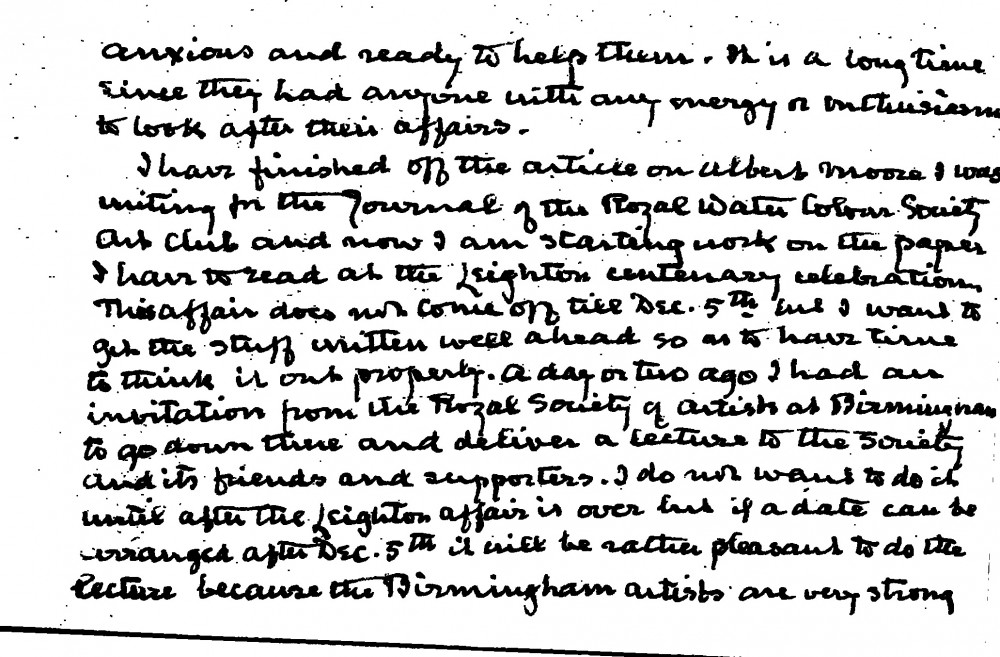 anxious and ready to help them. It is a long time
since they had anyone with any energy or enthusiasm
to look after their affairs.
I have finished off the article on Albert Moore I was
writing for the Journal of the Royal Water Colour Society
Art Club and now I am starting work on the paper
I have to read at the Leighton centenary celebration.
This affair does not come off till Dec. 5th but I want to
get the stuff written well ahead so as to have time
to think it out properly. A day or two ago I had an
invitation from the Royal Society of Artists at Birmingham
to go down there and deliver a lecture to the Society
and its friends and supporters. I do not want to do it
until after the Leighton affair is over but if a date can be
arranged after Dec. 5th it will be rather pleasant to do the
lecture because the Birmingham artists are very strong